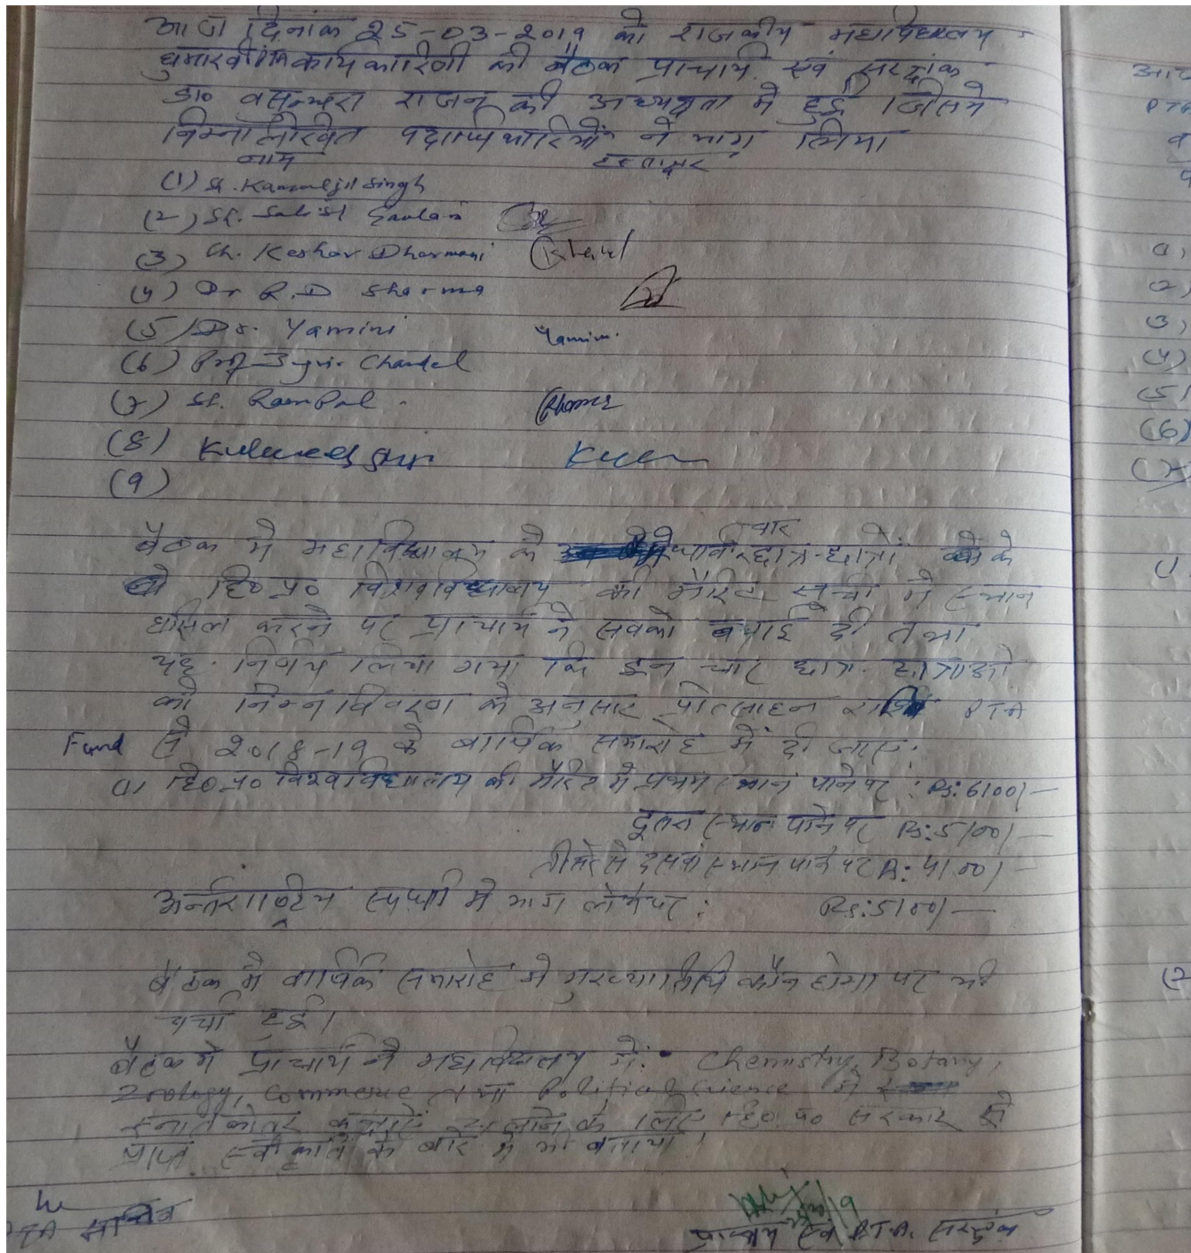 आज दिनांक 25-03-2019 को राजकीय महाविद्यालय
घुमारवीं कार्यकारिणी की बैठक प्राचार्य एवं संरक्षक
डा० वसुन्धरा राजन की अध्यक्षता में हुई जिसमें
निम्नलिखित पदाधिकारियों ने भाग लिया
नाम हस्ताक्षर
(1) Sh. Kamaljit Singh
(2) Sh. Satish Gautam
(3) Ch. Keshav Dharmani
(4) Dr R.D Sharma
(5) Dr. Yamini Yamini
(6) Prof. Chandel
(7) Sh. Ram Pal
(8)
(9)
चार
बैठक में महाविद्यालय के छात्र-छात्राओं के
हि० प्र० विश्वविद्यालय की मैरिट सूची में स्थान
हासिल करने पर प्राचार्य ने सबको बधाई दी तथा
यह निर्णय लिया गया कि इन चार छात्र-छात्राओं
को निम्न विवरण के अनुसार प्रोत्साहन राशि PTA
Fund से 2018-19 के वार्षिक समारोह में दी जाए:
(1) हि० प्र० विश्वविद्यालय की मैरिट में प्रथम स्थान पाने पर : Rs: 6100/-
दूसरा स्थान पाने पर Rs: 5100/-
तीसरे से दसवां स्थान पाने पर Rs: 4100/-
अन्तर्राष्ट्रीय स्पर्धा में भाग लेने पर : Rs: 5100/-
बैठक में वार्षिक समारोह में मुख्यातिथि कौन होगा पर भी
चर्चा हुई।
बैठक में प्राचार्य ने महाविद्यालय में Chemistry, Botany,
Zoology, Commerce तथा Political Science में
स्नातकोत्तर कक्षाएं चलाने के लिए हि० प्र० सरकार से
प्राप्त स्वीकृति के बारे में भी बताया।
PTA सचिव
एवं PTA संरक्षक
(1)
(2)
(3)
(4)
(5)
(6)
(1)
(2